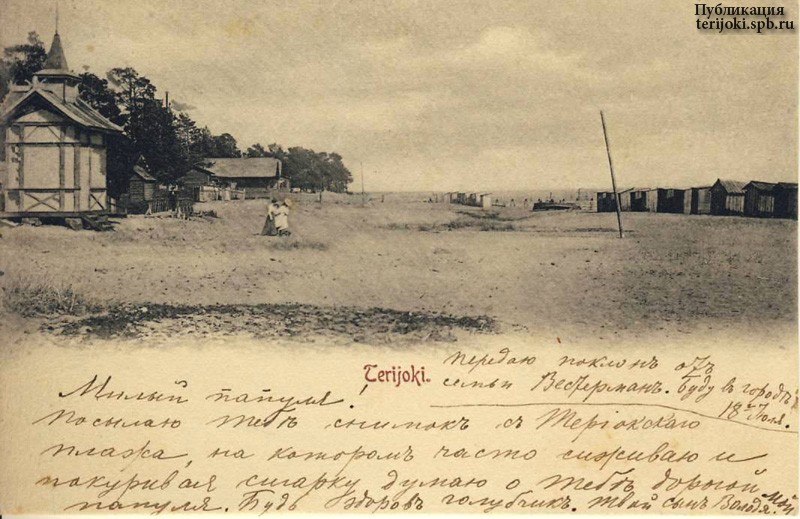 Публикация
terijoki.spb.ru
Terijoki.
Передаю поклонъ отъ
семьи Вестерманъ. Буду въ городѣ
18го Іюля.
Милый папуля!
Посылаю тебѣ снимокъ съ Теріокскаго
пляжа, на которомъ часто сиживаю и
покуривая сигарку думаю о тебѣ дорогой мой
папуля. Будь здоровъ голубчик. Твой сынъ Володя.